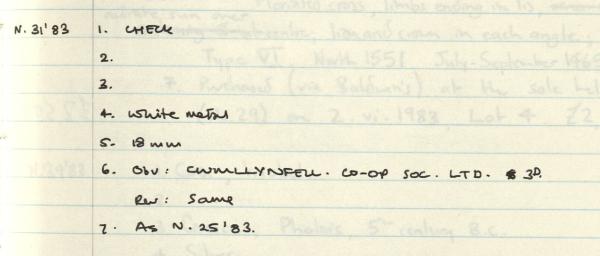 N. 31'83 1. CHECK
2.
3.
4. White metal
5. 18 mm
6. Obv: CWMLLYNFELL. CO-OP SOC. LTD. 3D.
Rev: Same
7. As N. 25'83.